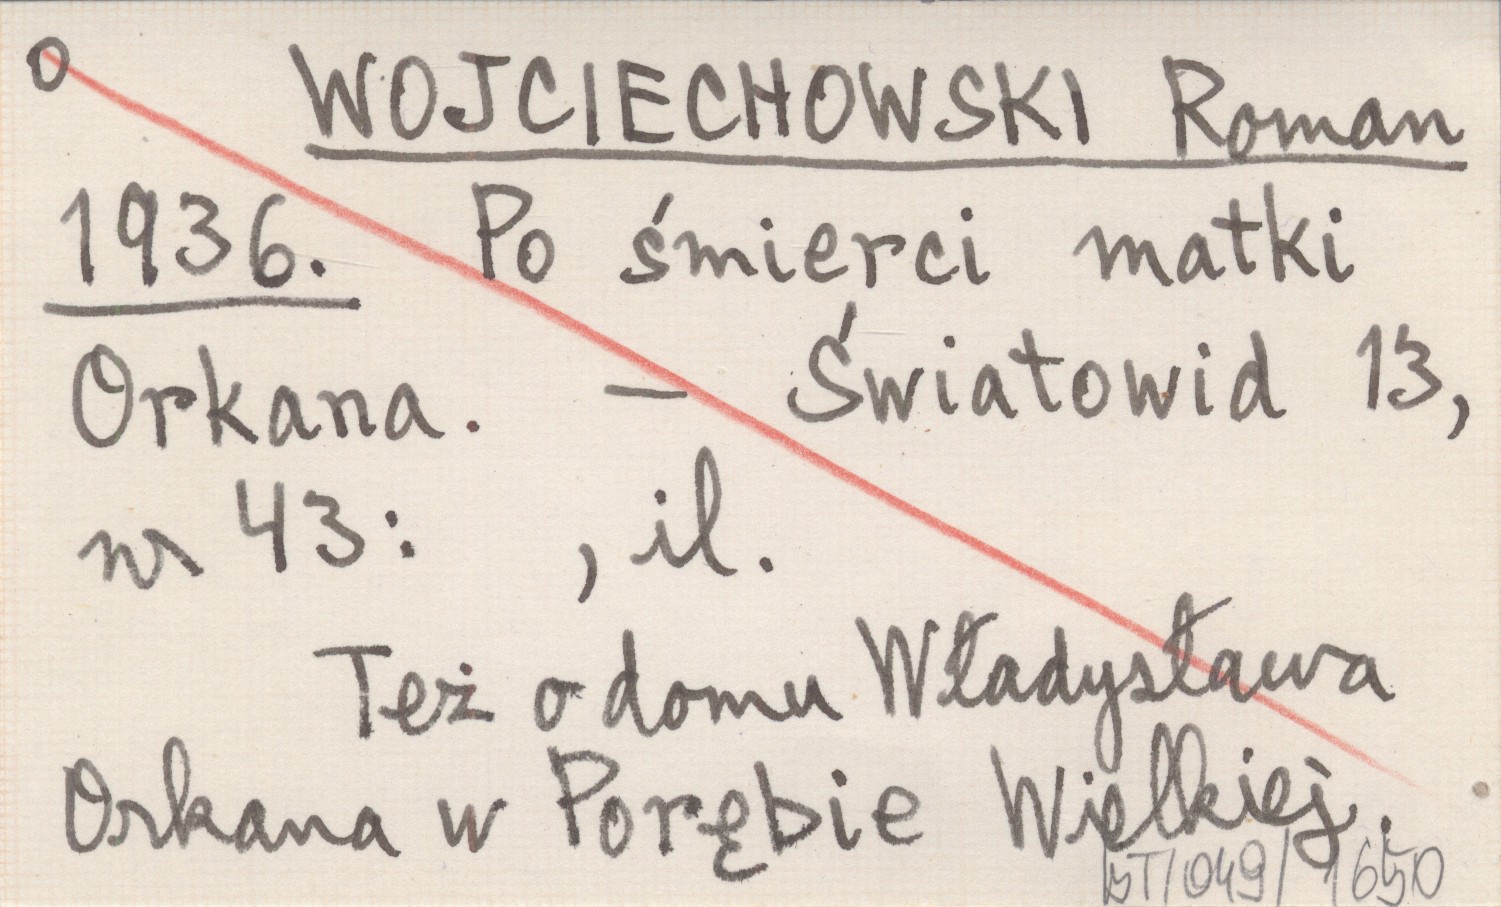 o WOJCIECHOWSKI Roman
1936. Po śmierci matki
Orkana. — Światowid 13,
nr 43: , il.
Też o domu Władysława
Orkana w Porębie Wielkiej.
BT/049/ /650